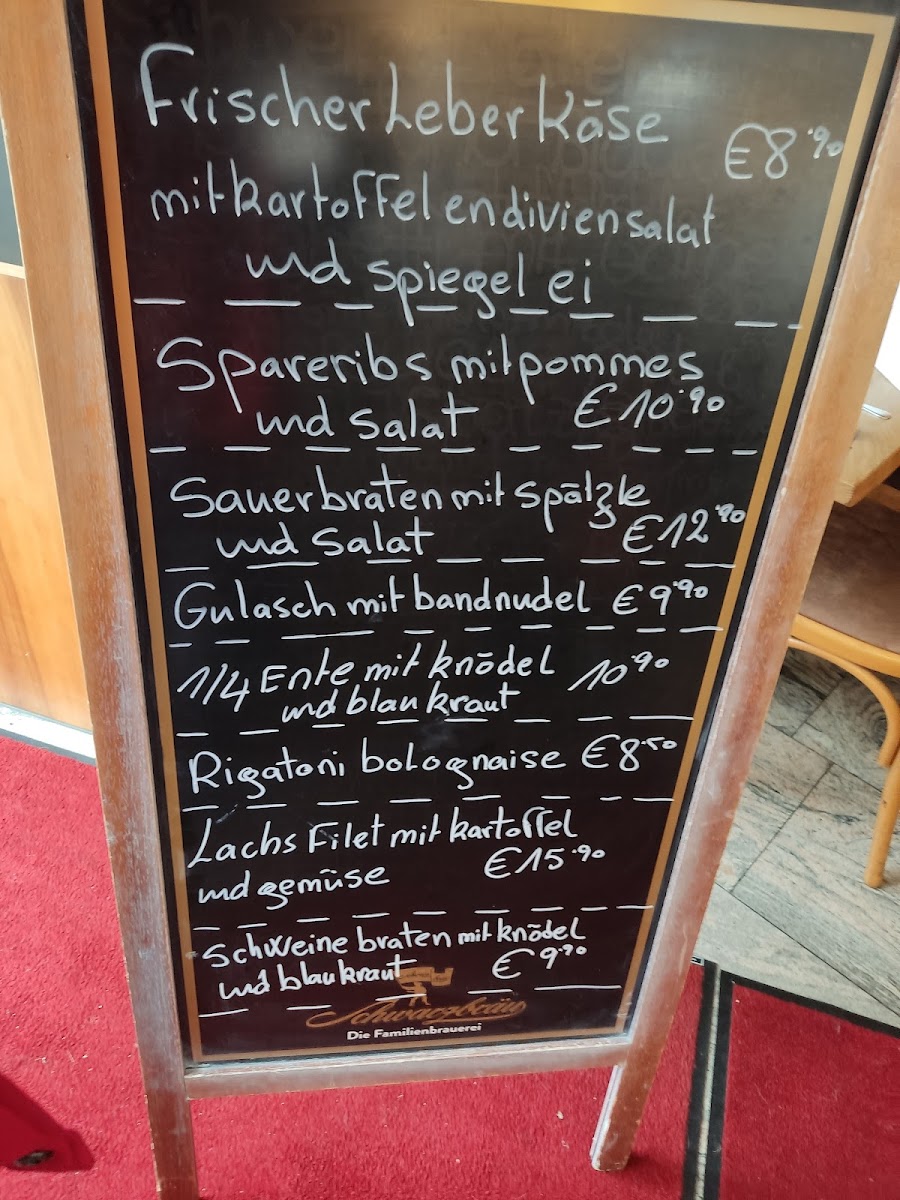 Frischer Leberkäse €8.90
mit kartoffel endiviensalat
und spiegel ei
Spareribs mit pommes
und salat €10.90
Sauerbraten mit spätzle
und salat €12.90
Gulasch mit bandnudel €9.90
1/4 Ente mit knödel 10.90
und blaukraut
Rigatoni bolognaise €8.50
Lachs Filet mit kartoffel
und gemüse €15.90
Schweine braten mit knödel
und blaukraut €9.90
Schwarzbräu
Die Familienbrauerei